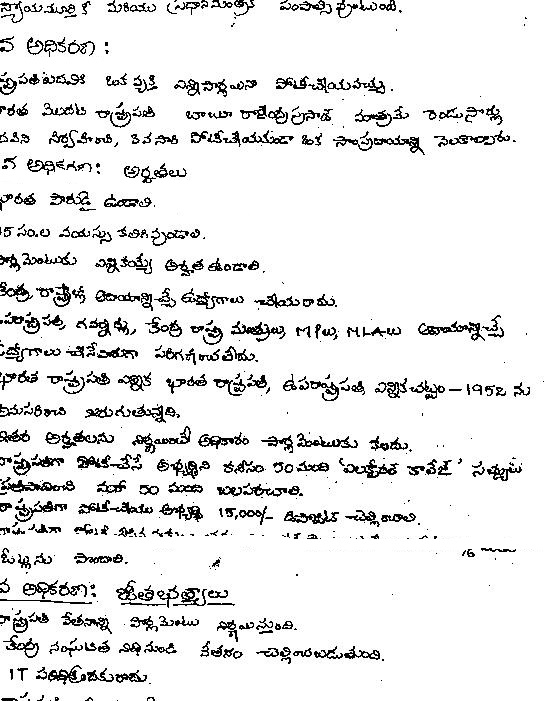 న్యాయమూర్తికి మరియు ప్రధానమంత్రికి పంపాల్సి వుంటుంది.
వ అధికరణ :
ష్ట్రపతి పదవికి ఒక వ్యక్తి ఎన్నిసార్లయినా పోటీచేయవచ్చు.
ారత మొదటి రాష్ట్రపతి బాబూ రాజేంద్రప్రసాద్ మాత్రమే రెండుసార్లు
దవిని నిర్వహించి, 3వ సారి పోటీచేయకుండా ఒక సాంప్రదాయాన్ని నెలకొల్పారు.
వ అధికరణ: అర్హతలు
భారత పౌరుడై ఉండాలి.
35 సం.ల వయస్సు కలిగివుండాలి.
పార్లమెంటుకు ఎన్నికయ్యే అర్హత ఉండాలి.
కేంద్ర, రాష్ట్రాల్లో ఆదాయాన్నిచ్చే ఉద్యోగాలు చేయరాదు.
ఉపరాష్ట్రపతి, గవర్నర్లు, కేంద్ర రాష్ట్ర మంత్రులు, MPలు, MLAలు ఆదాయాన్నిచ్చే
ఉద్యోగాలు చేసేవారుగా పరిగణించబడరు.
భారత రాష్ట్రపతి ఎన్నిక భారత రాష్ట్రపతి, ఉపరాష్ట్రపతి ఎన్నిక చట్టం - 1952 ను
అనుసరించి జరుగుతున్నది.
ఇతర అర్హతలను నిర్ణయించే అధికారం పార్లమెంటుకు కలదు.
రాష్ట్రపతిగా పోటీచేసే అభ్యర్థిని కనీసం 50 మంది 'ఎలక్టోరల్ కాలేజీ' సభ్యులు
ప్రతిపాదించి మరో 50 మంది బలపరచాలి.
రాష్ట్రపతిగా పోటీచేయు అభ్యర్థి 15,000/- డిపాజిట్ చెల్లించాలి.
ఓట్లను పొందాలి.
వ అధికరణ: జీతభత్యాలు
రాష్ట్రపతి వేతనాన్ని పార్లమెంటు నిర్ణయిస్తుంది.
కేంద్ర సంఘటిత నిధి నుండి వేతనం చెల్లించబడుతుంది.
IT పరిధిలోనికి రాదు.